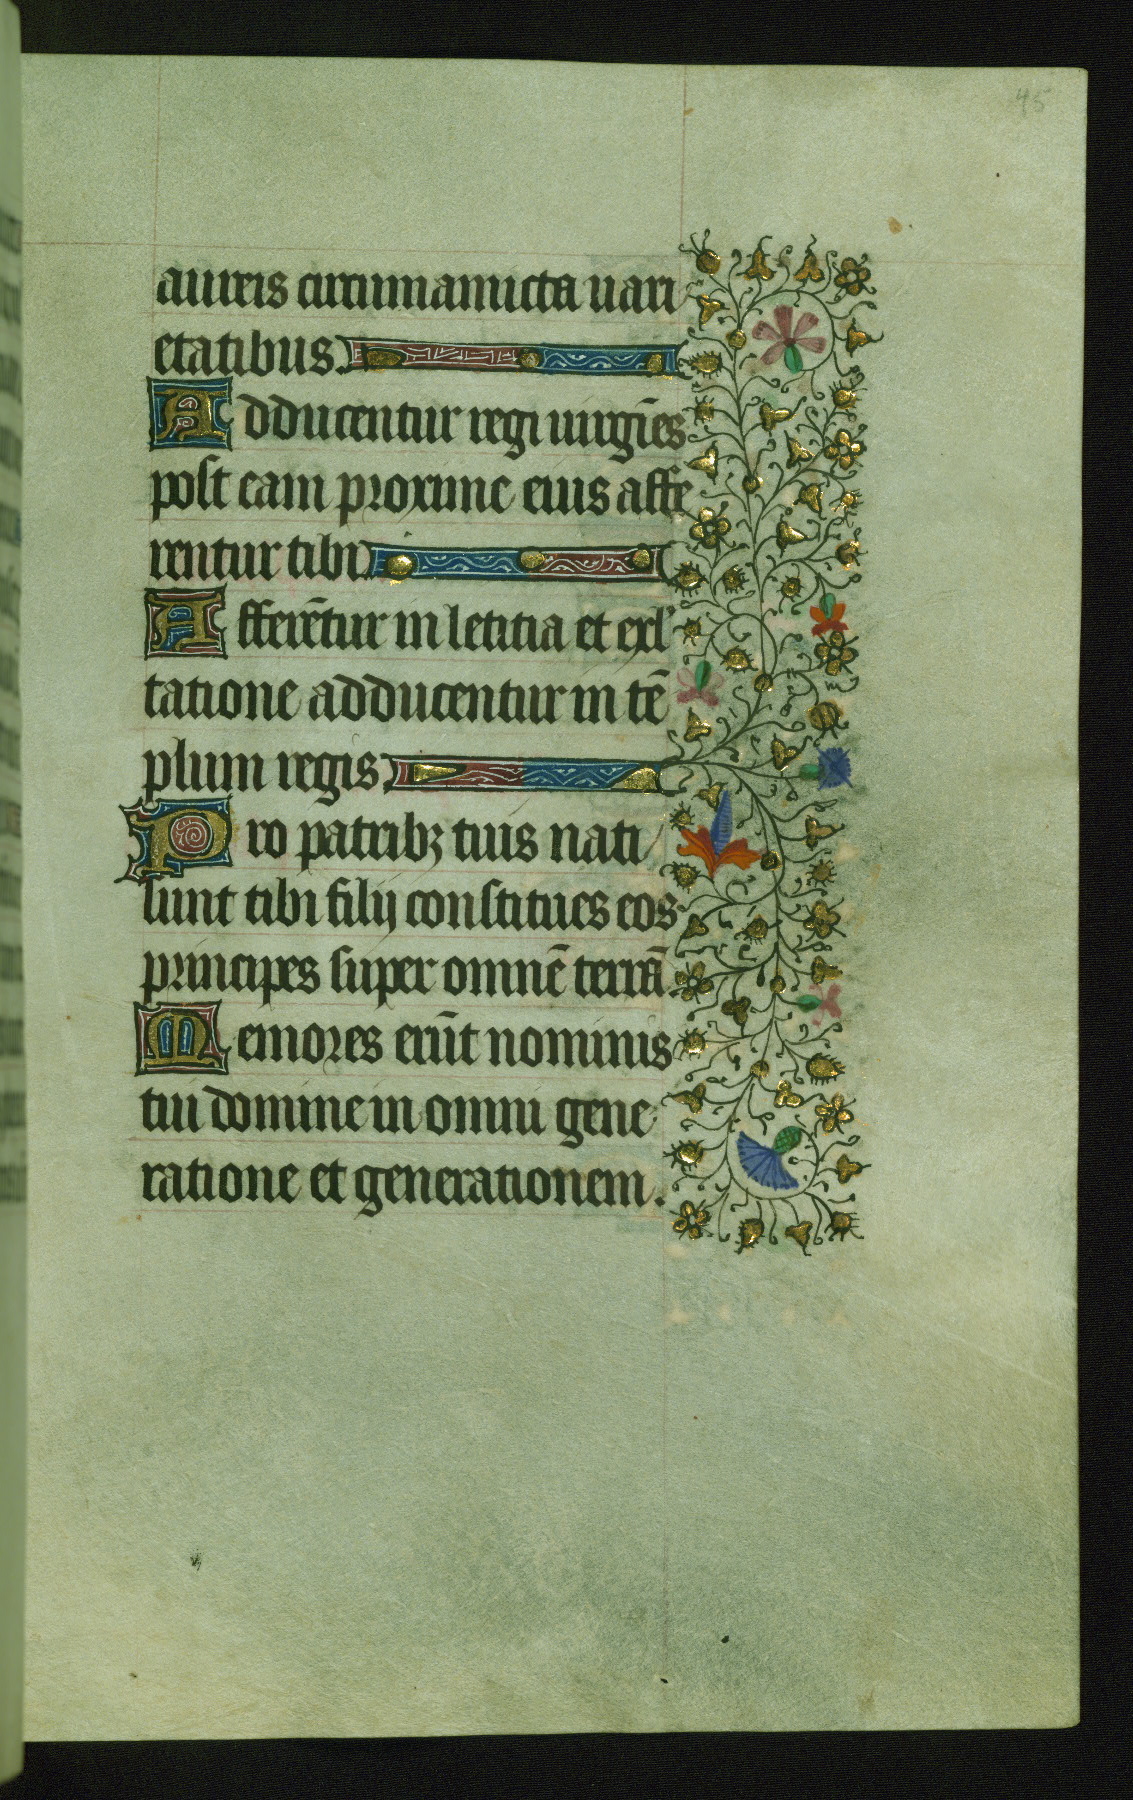 45
aureis circumamicta uari
etatibus.
Adducentur regi uirgīes
post eam proxime eius affe
rentur tibi.
Afferētur in letitia et exl'
tatione adducentur in tē
plum regis.
Pro patribꝫ tuis nati
sunt tibi filij constitues eos
principes super omnē terrā.
Memores erūt nominis
tui domine in omni gene
ratione et generationem.